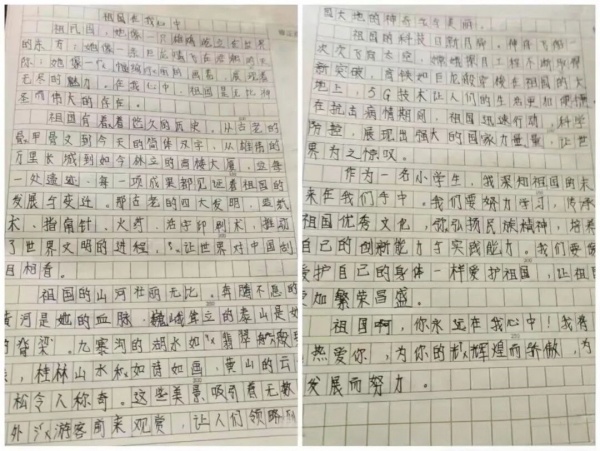 祖国在我心中
祖国,她像一只雄鸡屹立在世界
的东方;她像一条巨龙腾飞在浩瀚的天
际;她像一幅 的画卷,展现着
无尽的魅力。在我心中,祖国是无比神
圣而伟大的存在。
祖国有着悠久的历史。从古老的
甲骨文到今天的简体汉字,从雄伟的
万里长城到如今林立的高楼大厦,这每
一处遗迹、每一项成果都见证着祖国的
发展与变迁。那古老的四大发明,造纸
术、指南针、火药、活字印刷术,推动
了世界文明的进程,让世界对中国刮
目相看。
祖国的山河壮丽无比。奔腾不息的
黄河是她的血脉,巍峨耸立的泰山是她
的脊梁。九寨沟的湖水如翡翠般
,桂林山水如诗如画,黄山的云
松令人称奇。这些美景吸引着无数
外游客前来观赏,让人们领略
国大地的神奇与美丽。
祖国的科技日新月异。神舟飞船一
次次飞向太空,嫦娥探月工程不断取得
新突破,高铁如巨龙般穿梭在祖国的大
地上,5G技术让人们的生活更加便捷。
在抗击病情期间,祖国迅速行动,科学
防控,展现出强大的国家力量,让世
界为之惊叹。
作为一名小学生,我深知祖国的未
来在我们手中。我们要努力学习,传承
祖国优秀文化,弘扬民族精神,培养
自己的创新能力与实践能力。我们要像
爱护自己的身体一样爱护祖国,让祖国
更加繁荣昌盛。
祖国啊,你永远在我心中!我将
热爱你,为你的辉煌而骄傲,为
发展而努力。